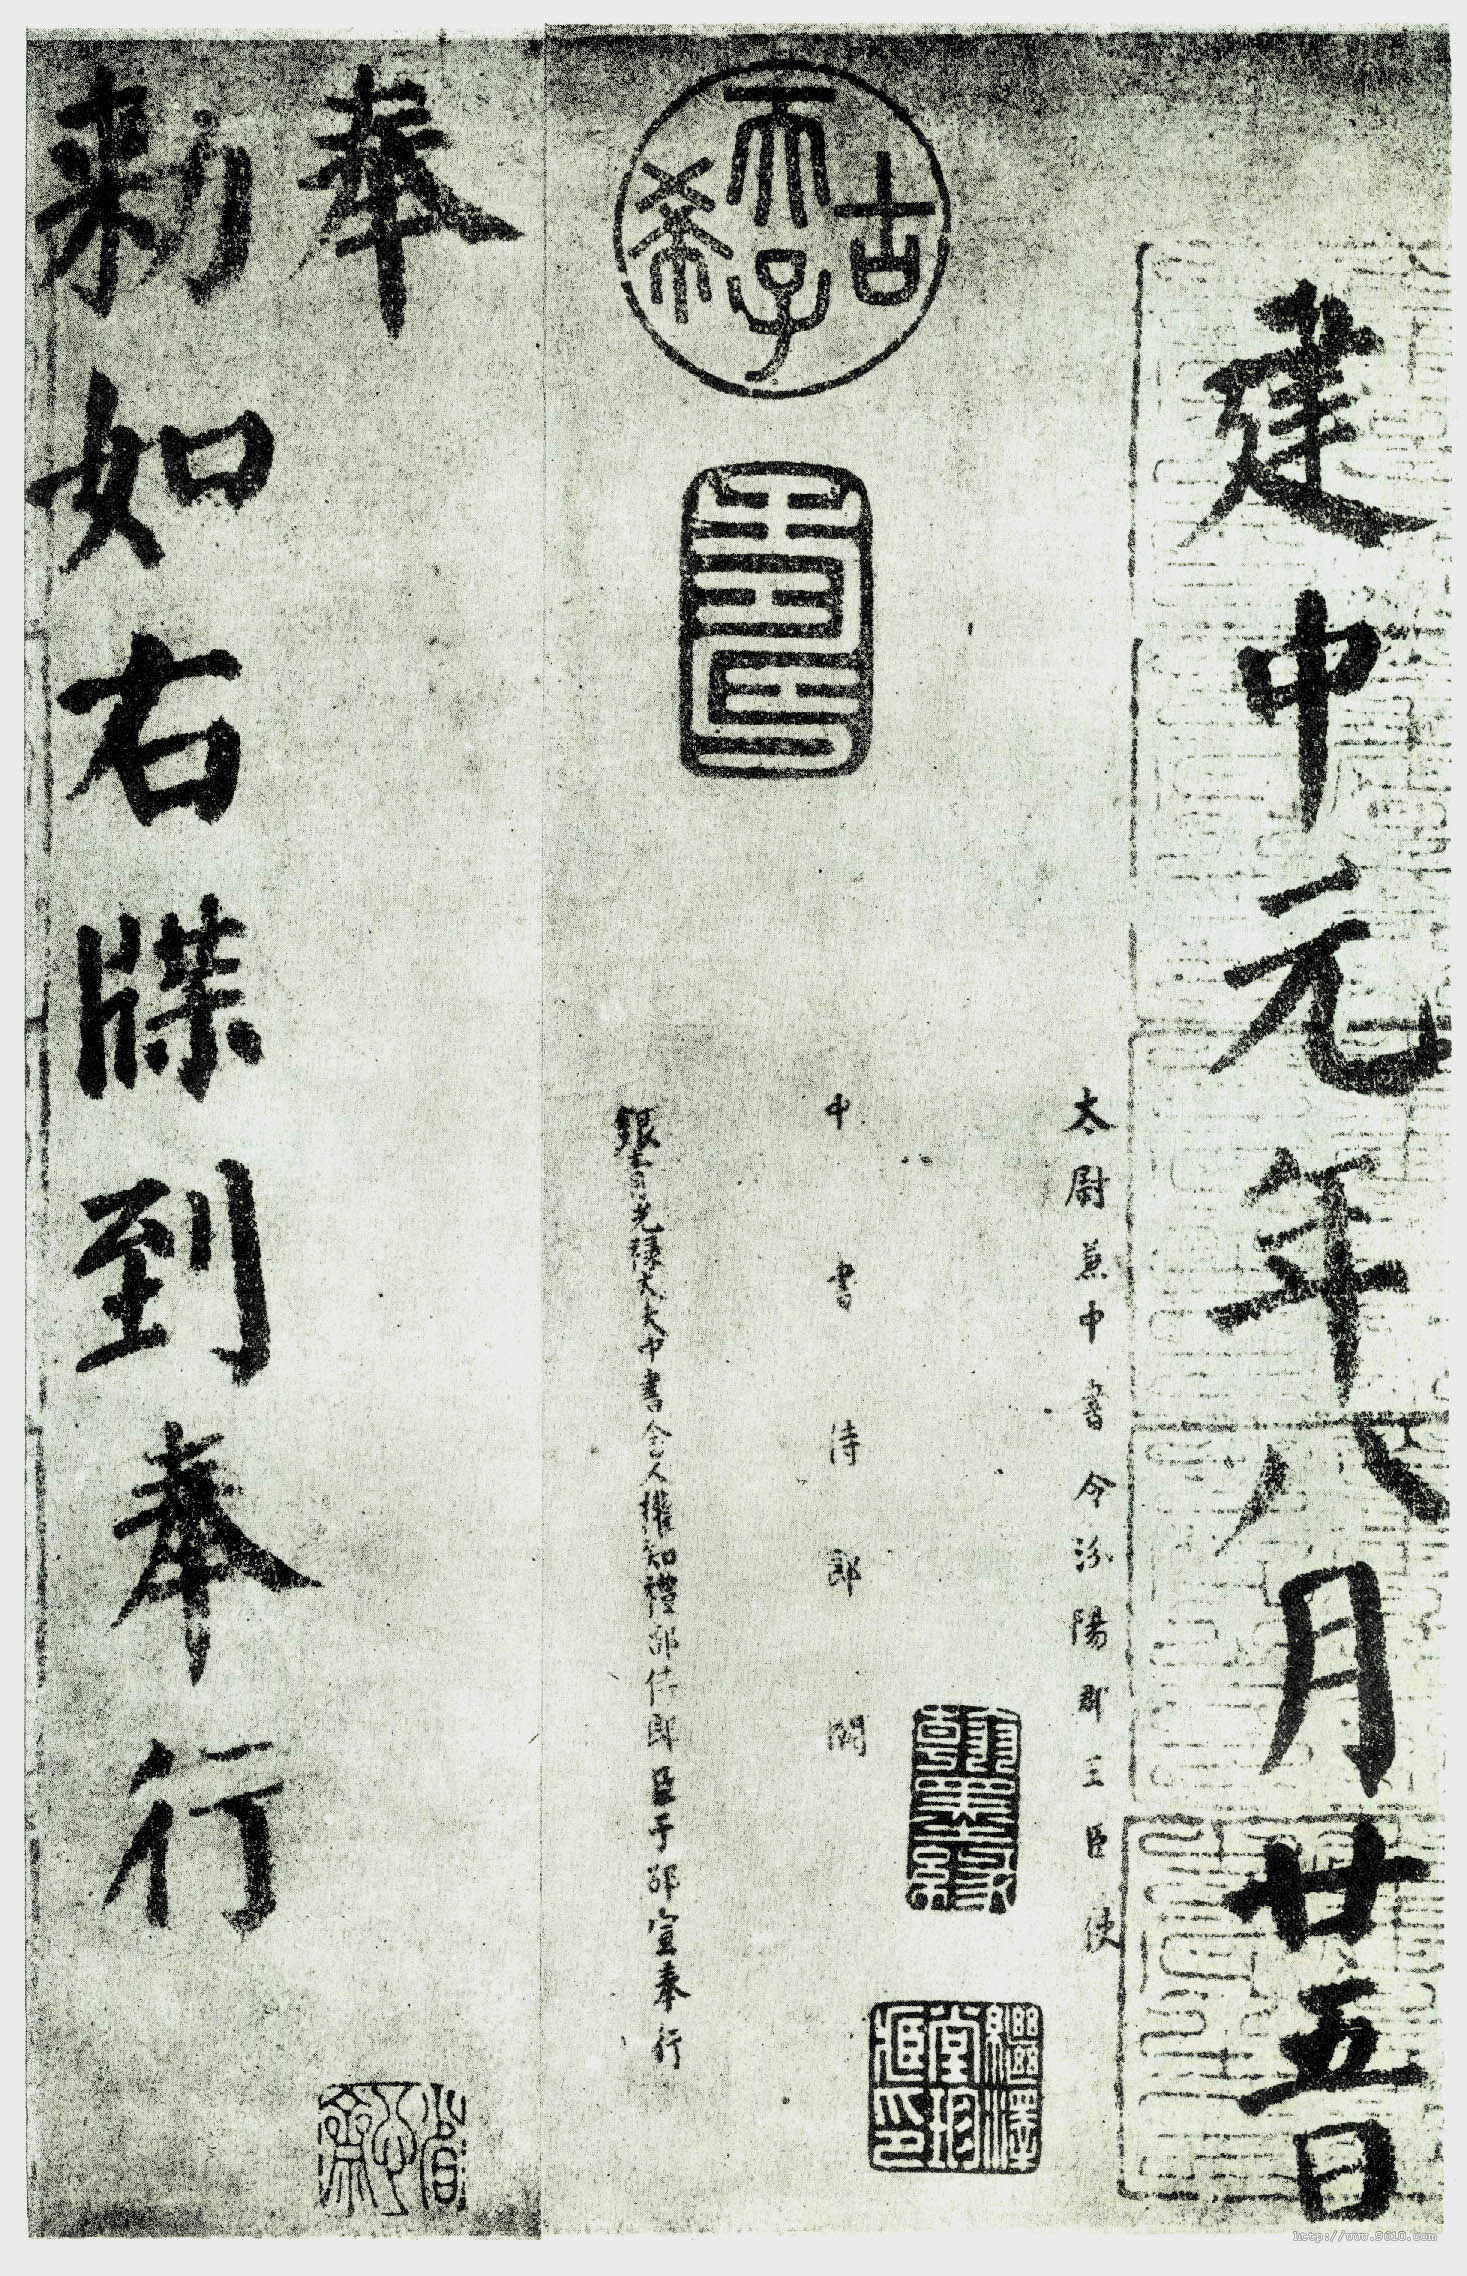 建中元年八月廿五日
太尉兼中書令汾陽郡王臣使
中書侍郎闕
銀青光祿大夫中書舍人權知禮部侍郎臣于邵宣奉行
奉
勅如右牒到奉行
古希天子
壽
繼澤堂珍藏印
http://www.9610.com